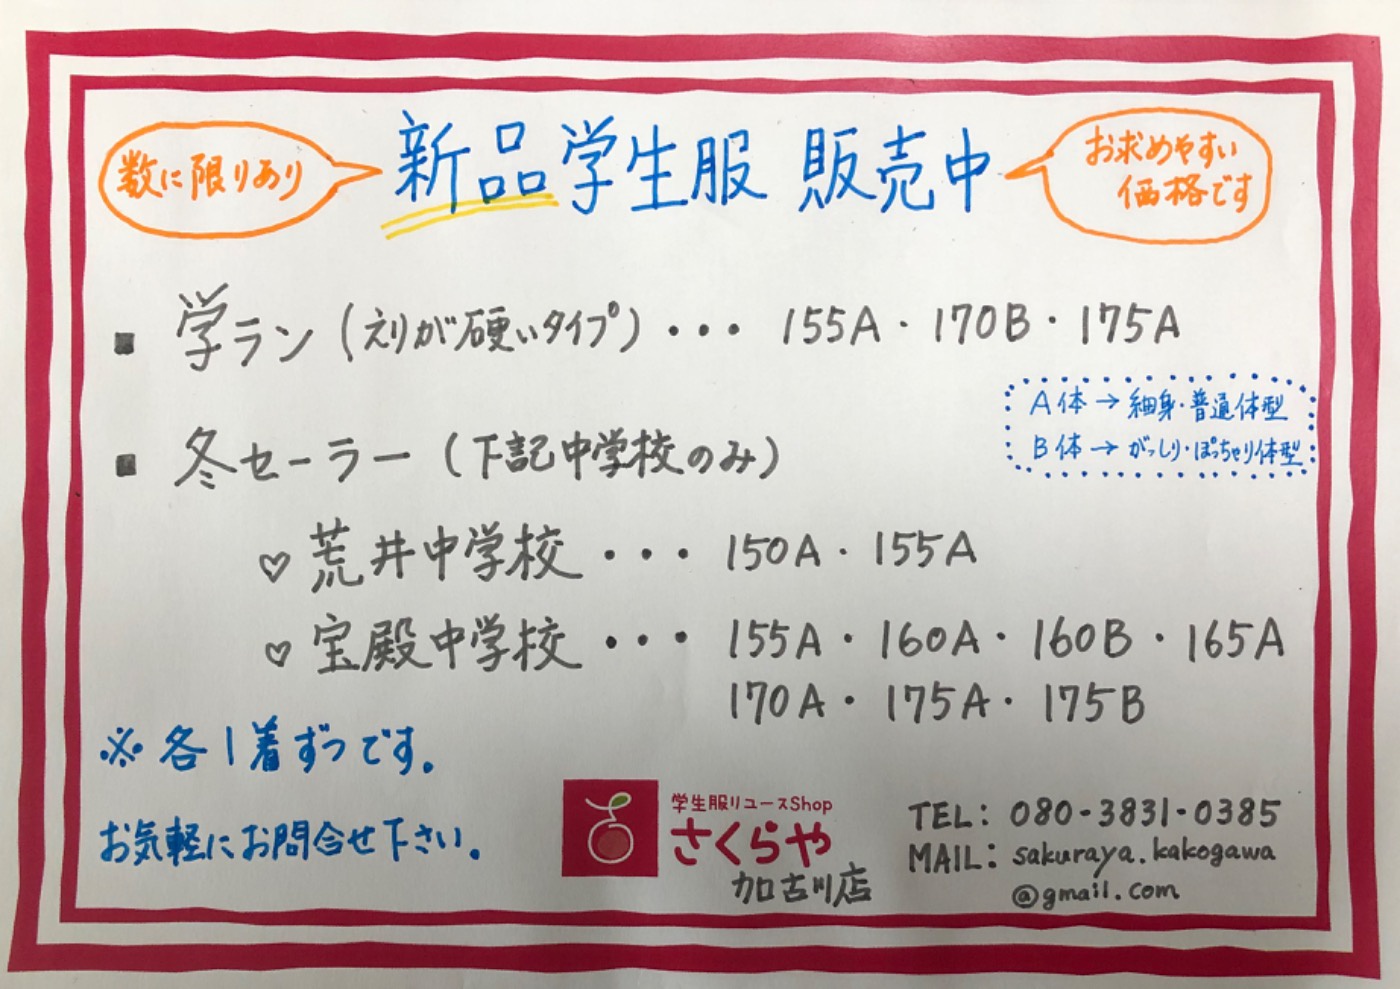 数に限りあり
新品学生服 販売中
お求めやすい
価格です
■ 学ラン(えりが硬いタイプ)・・・ 155A・170B・175A
A体→細身・普通体型
B体→がっしり・ぽっちゃり体型
■ 冬セーラー(下記中学校のみ)
♡ 荒井中学校・・・ 150A・155A
♡ 宝殿中学校・・・ 155A・160A・160B・165A
170A・175A・175B
※ 各1着ずつです。
お気軽にお問合せ下さい。
学生服リユースShop
さくらや
加古川店
TEL: 080-3831-0385
MAIL: sakuraya.kakogawa
@gmail.com